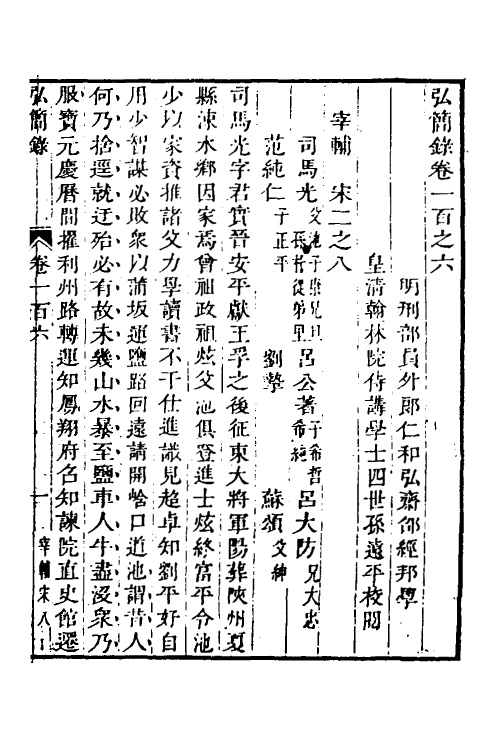 弘簡錄卷一百之六
明刑部員外郎仁和弘齋邵經邦學
皇清翰林院侍講學士四世孫遠平校閱
宰輔 宋二之八
司馬光 父池 子康 兄旦 呂公著 子希哲 希純 呂大防 兄大忠
范純仁 子正平 劉摯 蘇頌 父紳
司馬光字君實晉安平獻王孚之後征東大將軍陽葬陝州夏
縣涑水鄉因家焉曾祖政祖炫父池俱登進士炫終富平令池
少以家資推諸父力學讀書不干仕進識見超卓知劉平好自
用少智謀必敗衆以蒲坂運鹽路回遠請開㟏口道池謂昔人
何乃捨逕就迂殆必有故未幾山水暴至鹽車人牛盡沒衆乃
服寶元慶曆間擢利州路轉運知鳳翔府召知諫院直史館遷
弘簡錄 卷一百六 一 宰輔宋八